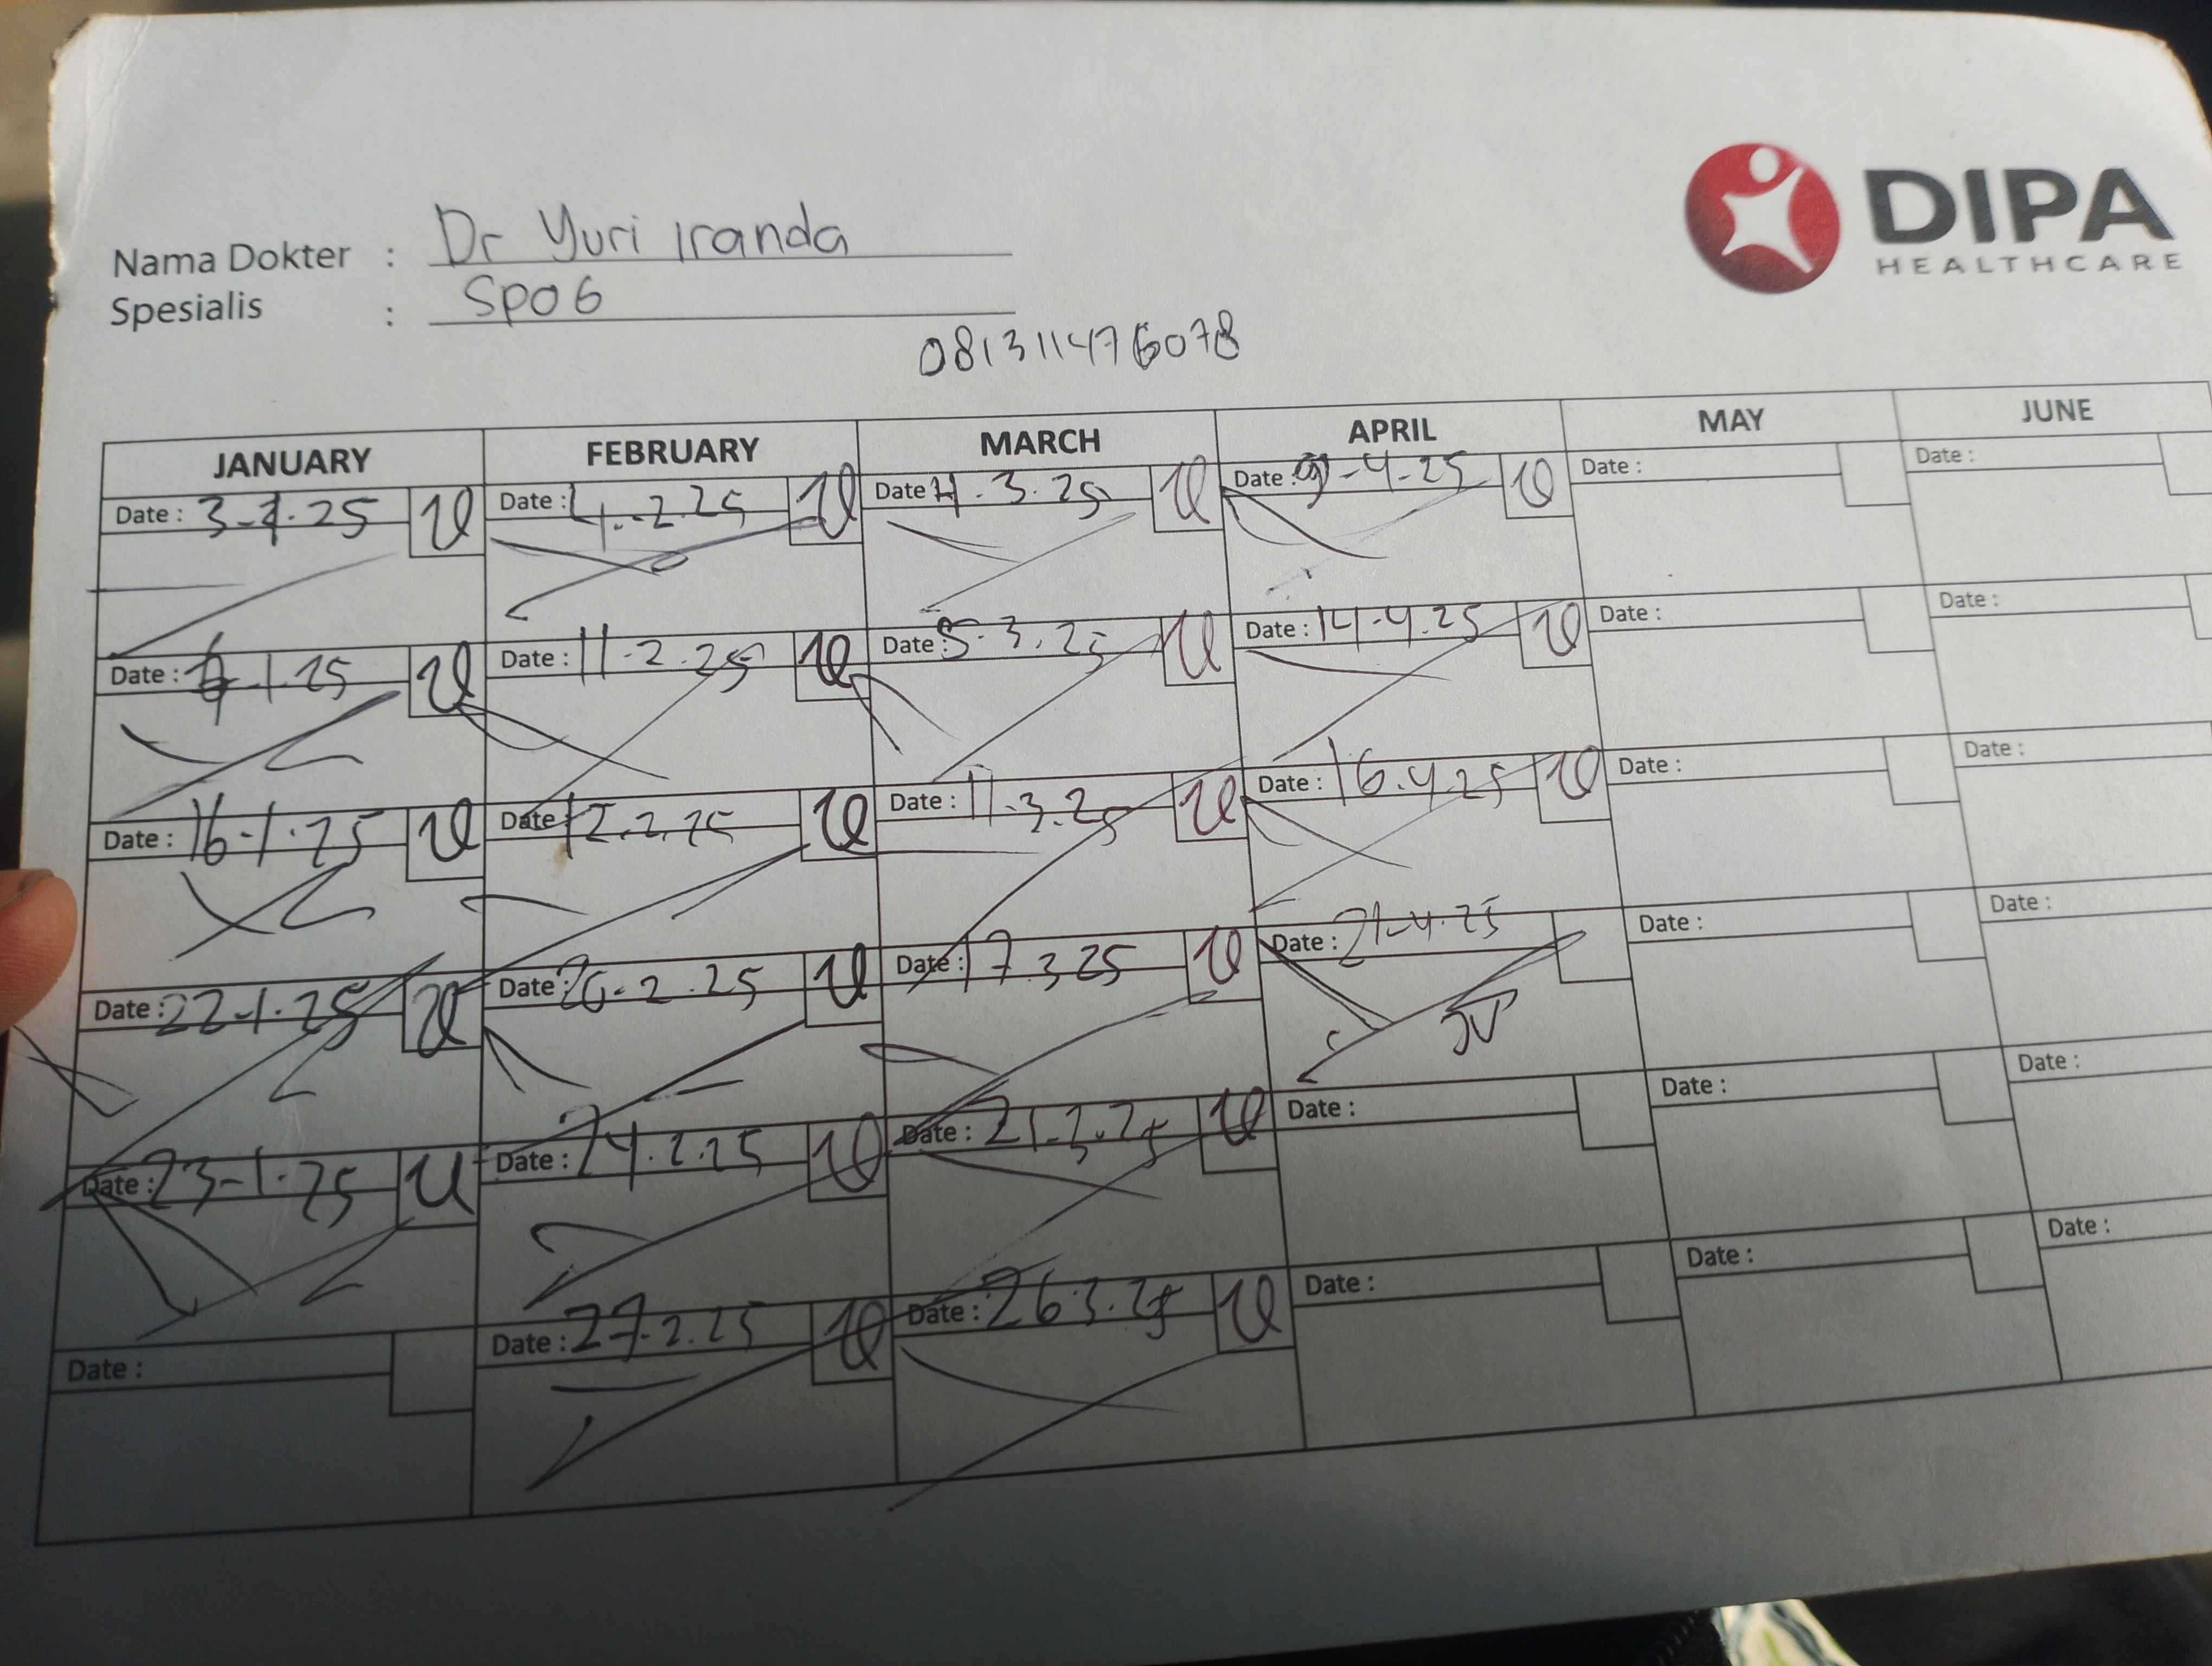 DIPA
HEALTHCARE
Nama Dokter : Dr Yuri Iranda
Spesialis : SPOG
081311476078
JANUARY FEBRUARY MARCH APRIL MAY JUNE
Date : 3-1-25 Date : 4.-2.25 Date 4.3.25 Date : 9-4-25 Date : Date :
Date : 6-1.25 Date : 11.2.25 Date : 5.3.25 Date : 14.4.25 Date : Date :
Date : 16-1.25 Date 12.2.25 Date : 11.3.25 Date : 16.4.25 Date : Date :
Date : 22-1.25 Date : 20-2.25 Date : 17.3 25 Date : 21-4.25 Date : Date :
Date : 23-1.25 Date : 24.2.25 Date : 21.3.25 Date : Date : Date :
Date : Date : 27-2.25 Date : 26 3.25 Date : Date : Date :